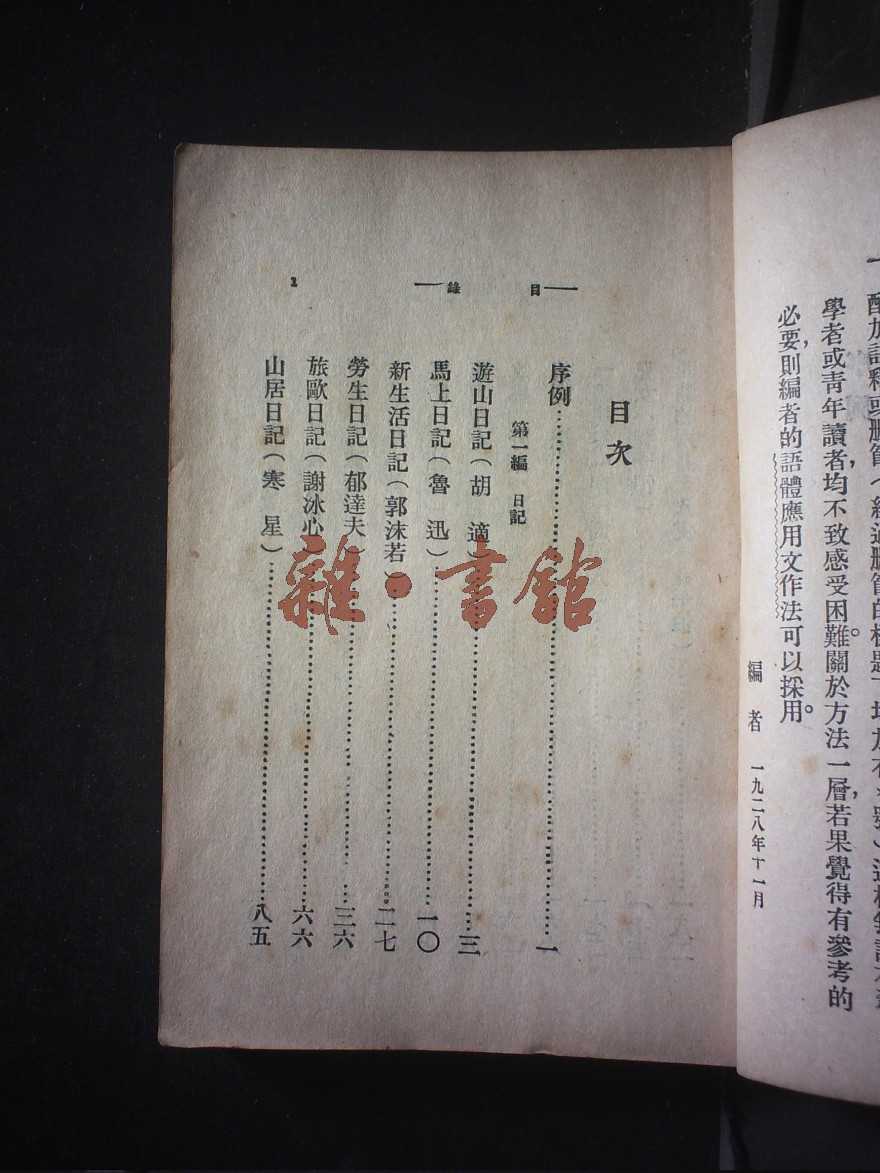 學者或青年讀者,均不致感受困難。關於方法一層,若果覺得有參考的
必要,則編者的語體應用文作法可以採用。
編者 一九二八年十一月
目錄
1
目次
序例 一
第一編 日記
遊山日記(胡適) 三
馬上日記(魯迅) 一〇
新生活日記(郭沫若) 二七
勞生日記(郁達夫) 三六
旅歐日記(謝冰心) 六六
山居日記(寒星) 八五
雜·書館